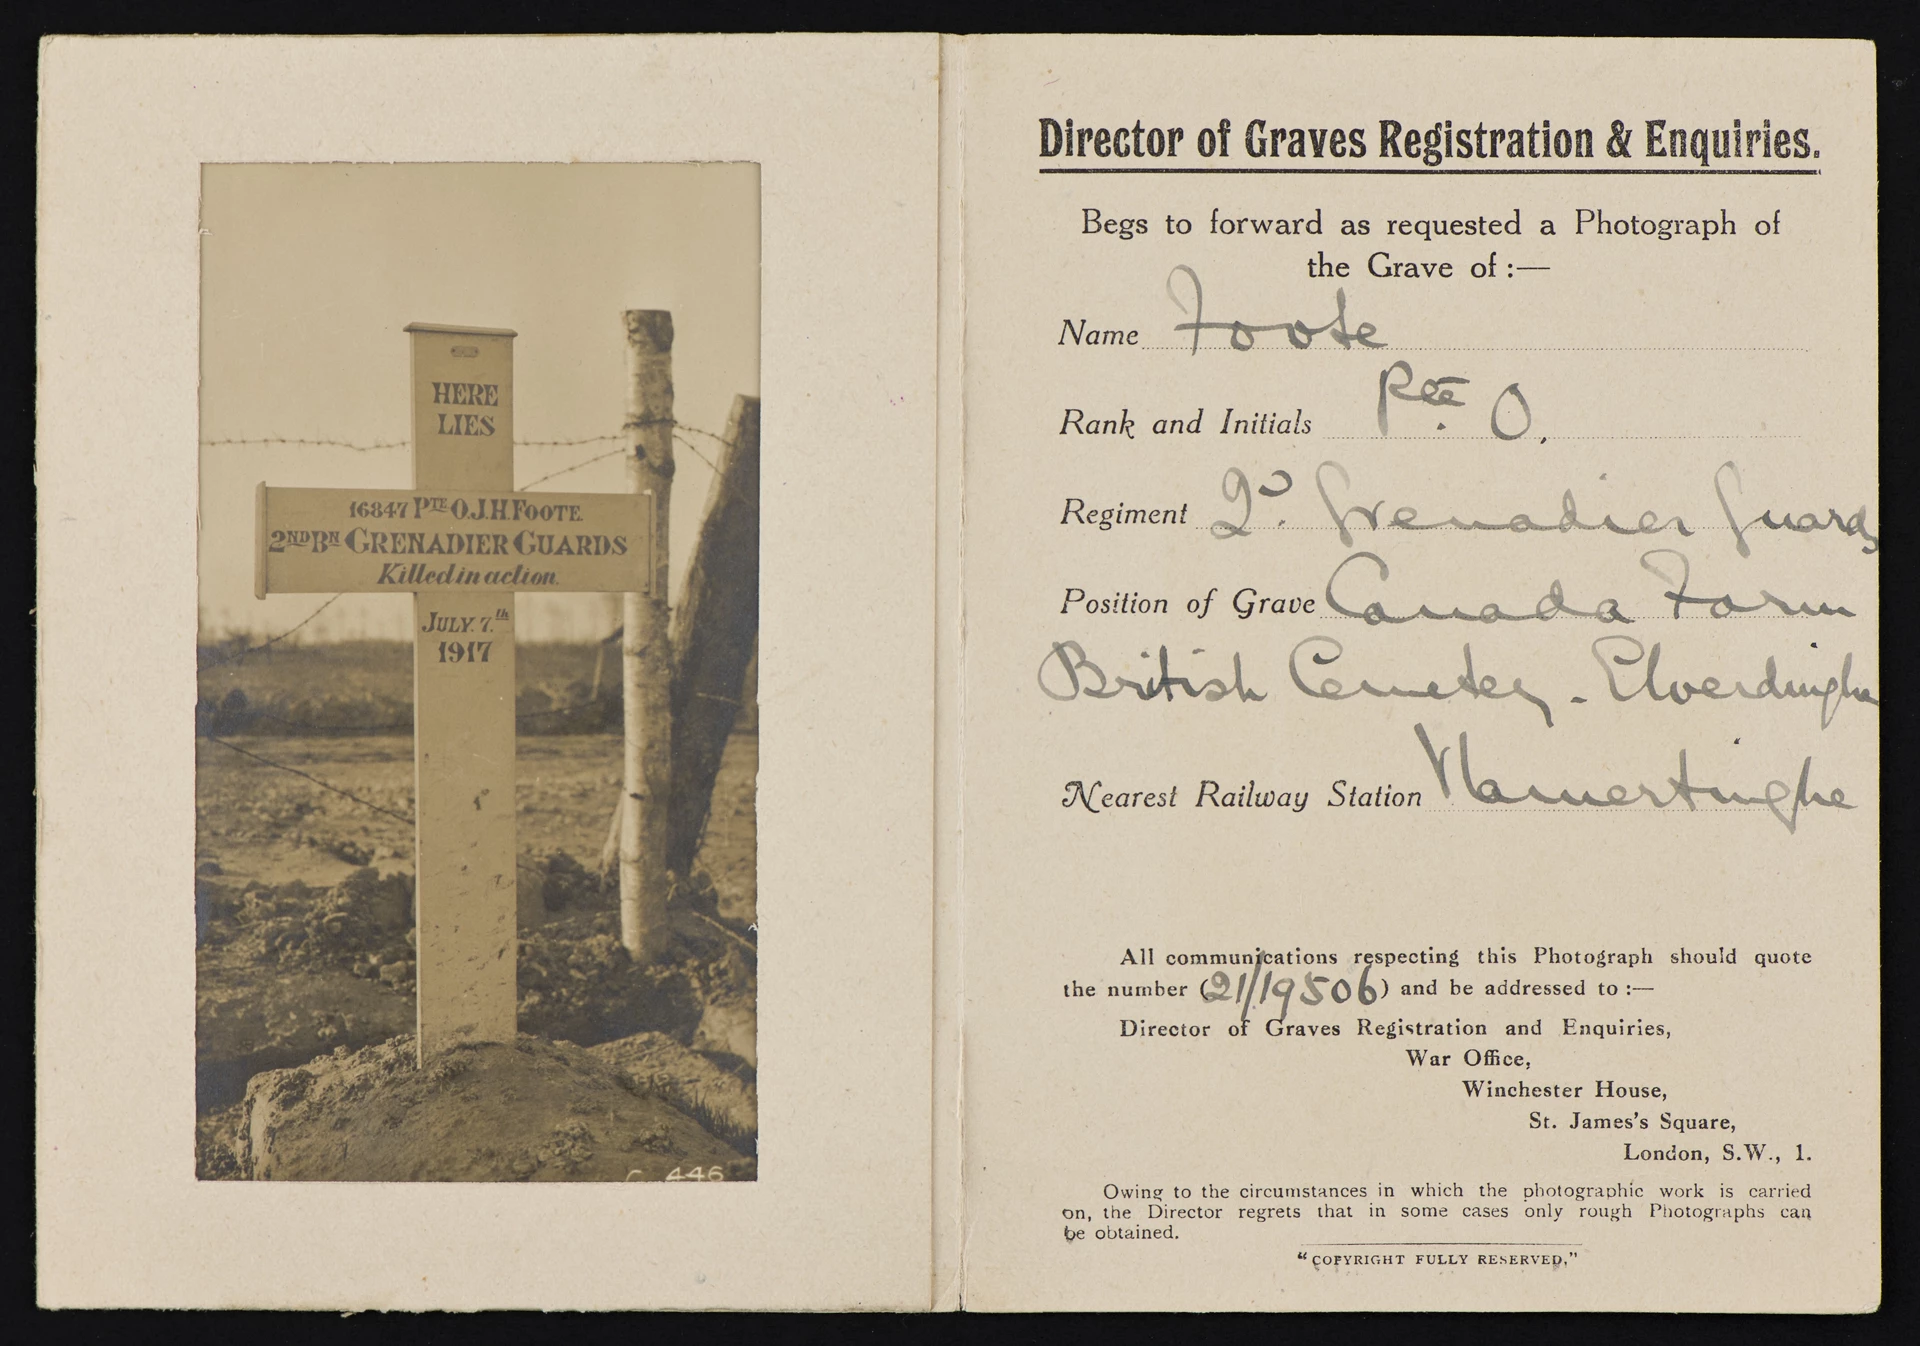 HERE
LIES
16847 PTE O.J.H. FOOTE.
2ND BN GRENADIER GUARDS
Killed in action.
JULY. 7.th
1917
C 446
Director of Graves Registration & Enquiries.
Begs to forward as requested a Photograph of
the Grave of :—
Name Foote
Rank and Initials Pte. O.
Regiment 2º. Grenadier Guards
Position of Grave Canada Farm
British Cemetery - Elverdinghe
Nearest Railway Station Vlamertinghe
All communications respecting this Photograph should quote
the number (21/19506) and be addressed to :—
Director of Graves Registration and Enquiries,
War Office,
Winchester House,
St. James's Square,
London, S.W., 1.
Owing to the circumstances in which the photographic work is carried
on, the Director regrets that in some cases only rough Photographs can
be obtained.
"COPYRIGHT FULLY RESERVED."